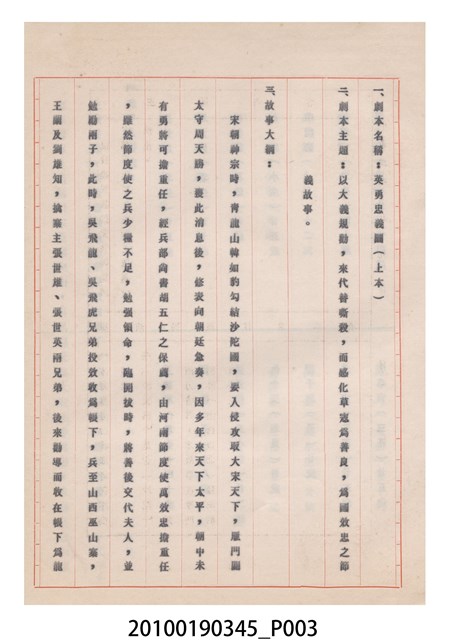 一、劇本名稱：英勇忠義圖（上本）
二、劇本主題：以大義規勸，來代替廝殺，而感化草寇為善良，為國效忠之節
義故事。
三、故事大綱：
宋朝神宗時，青龍山韓如豹勾結沙陀國，要入侵攻取大宋天下，雁門關
太守周天勝，獲此消息後，修表向朝廷急奏，因多年來天下太平，朝中未
有勇將可擔重任，經兵部尚書胡五仁之保薦，由河南節度使萬效忠擔重任
，雖然節度使之兵少糧不足，勉強領命，臨開拔時，將善後交代夫人，並
勉勵兩子，此時，吳飛龍、吳飛虎兄弟投效收為帳下，兵至山西巫山寨，
王蘭及劉雄知，擒寨主張世雄、張世英兩兄弟，後來勸導而收在帳下為龍
20100190345_P003